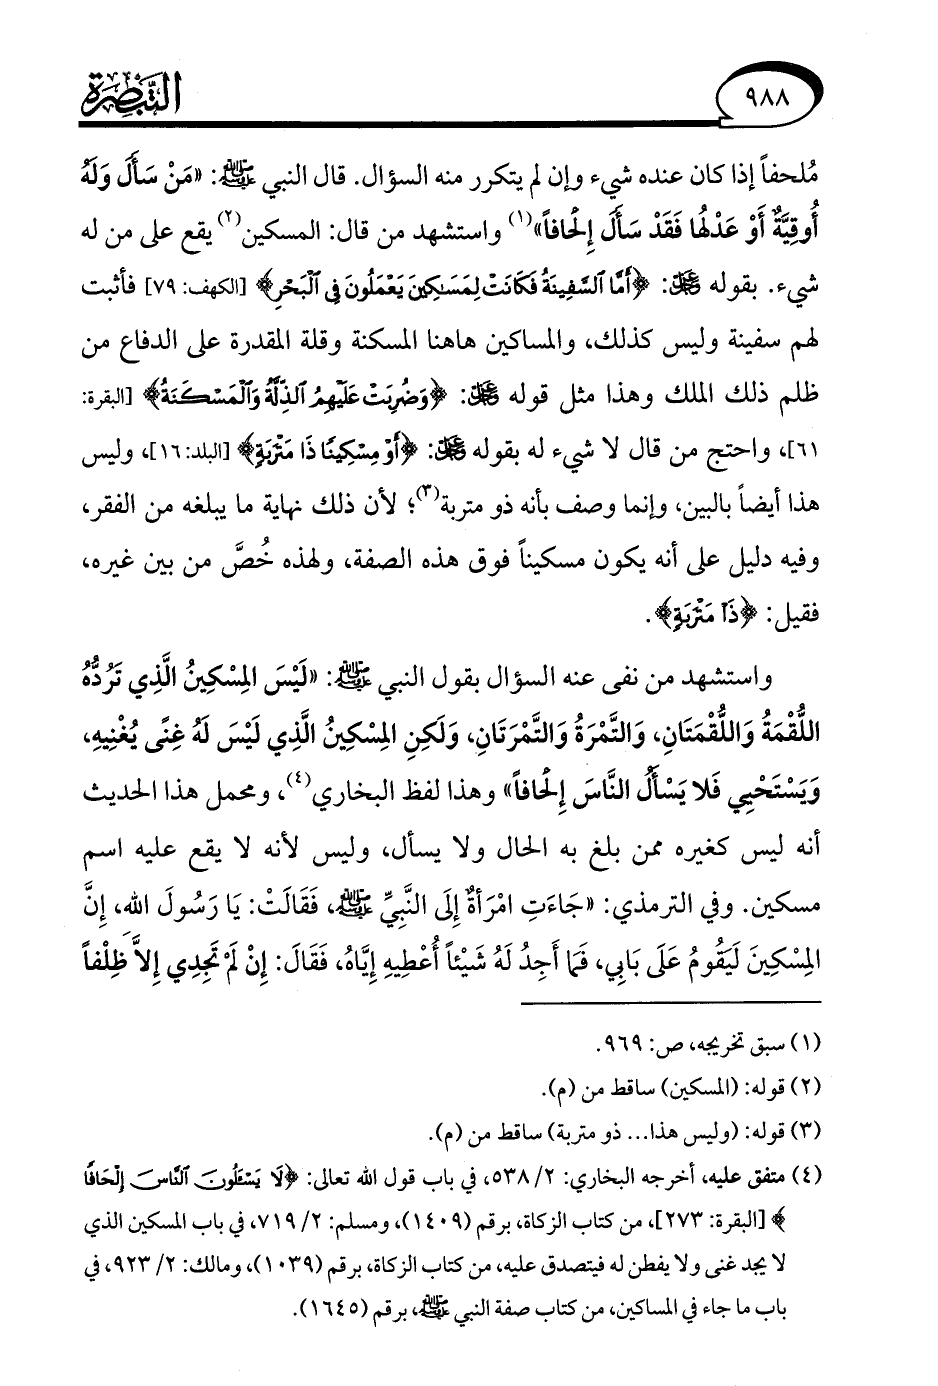 ٩٨٨
التبصرة
مُلحفاً إذا كان عنده شيء وإن لم يتكرر منه السؤال. قال النبي ﷺ: «مَنْ سَأَلَ وَلَهُ
أُوقِيَّةٌ أَوْ عَدْلُهَا فَقَدْ سَأَلَ إِلْحَافاً»(١) واستشهد من قال: المسكين(٢) يقع على من له
شيء. بقوله ﷻ: ﴿أَمَّا ٱلسَّفِينَةُ فَكَانَتْ لِمَسَٰكِينَ يَعْمَلُونَ فِى ٱلْبَحْرِ﴾ [الكهف: ٧٩] فأثبت
لهم سفينة وليس كذلك، والمساكين هاهنا المسكنة وقلة المقدرة على الدفاع من
ظلم ذلك الملك وهذا مثل قوله ﷻ: ﴿وَضُرِبَتْ عَلَيْهِمُ ٱلذِّلَّةُ وَٱلْمَسْكَنَةُ﴾ [البقرة:
٦١]، واحتج من قال لا شيء له بقوله ﷻ: ﴿أَوْ مِسْكِينًا ذَا مَتْرَبَةٍ﴾ [البلد: ١٦]، وليس
هذا أيضاً بالبين، وإنما وصف بأنه ذو متربة(٣)؛ لأن ذلك نهاية ما يبلغه من الفقر،
وفيه دليل على أنه يكون مسكيناً فوق هذه الصفة، ولهذه خُصَّ من بين غيره،
فقيل: ﴿ذَا مَتْرَبَةٍ﴾.
واستشهد من نفى عنه السؤال بقول النبي ﷺ: «لَيْسَ المِسْكِينُ الَّذِي تَرُدُّهُ
اللُّقْمَةُ وَاللُّقْمَتَان، وَالتَّمْرَةُ وَالتَّمْرَتَان، وَلَكِنِ المِسْكِينُ الَّذِي لَيْسَ لَهُ غِنًى يُغْنِيهِ،
وَيَسْتَحْيِي فَلا يَسْأَلُ النَّاسَ إِلْحَافاً» وهذا لفظ البخاري(٤)، ومحمل هذا الحديث
أنه ليس كغيره ممن بلغ به الحال ولا يسأل، وليس لأنه لا يقع عليه اسم
مسكين. وفي الترمذي: «جَاءَتِ امْرَأةٌ إِلَى النَّبِيِّ ﷺ، فَقَالَتْ: يَا رَسُولَ الله، إِنَّ
المِسْكِينَ لَيَقُومُ عَلَى بَابِي، فَمَا أَجِدُ لَهُ شَيْئاً أُعْطِيهِ إِيَّاهُ، فَقَالَ: إِنْ لَمْ تَجِدِي إِلاَّ ظِلْفاً
(١) سبق تخريجه، ص: ٩٦٩.
(٢) قوله: (المسكين) ساقط من (م).
(٣) قوله: (وليس هذا... ذو متربة) ساقط من (م).
(٤) متفق عليه، أخرجه البخاري: ٢/ ٥٣٨، في باب قول الله تعالى: ﴿لَا يَسْـَٔلُونَ ٱلنَّاسَ إِلْحَافًا
﴾ [البقرة: ٢٧٣]، من كتاب الزكاة، برقم (١٤٠٩)، ومسلم: ٢/ ٧١٩، في باب المسكين الذي
لا يجد غنى ولا يفطن له فيتصدق عليه، من كتاب الزكاة، برقم (١٠٣٩)، ومالك: ٢/ ٩٢٣، في
باب ما جاء في المساكين، من كتاب صفة النبي ﷺ، برقم (١٦٤٥).